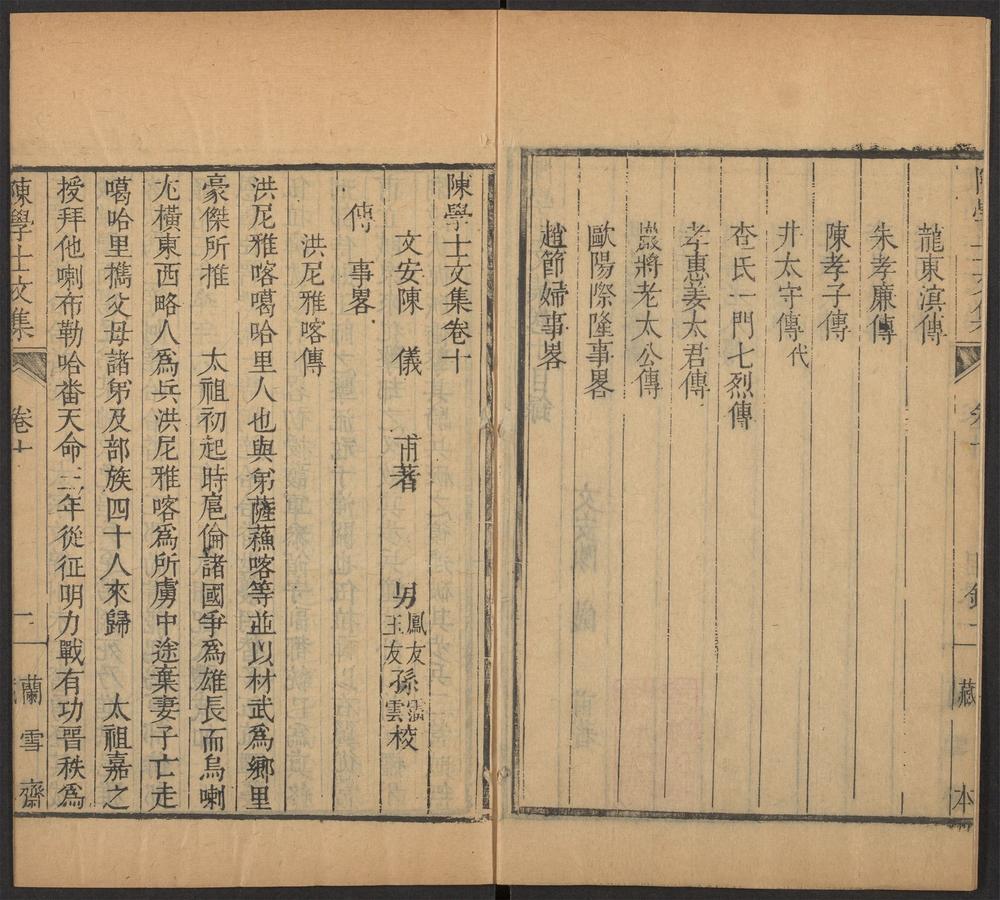 龍東溟傳
朱孝廉傳
陳孝子傳
井太守傳代
查氏一門七烈傳
孝惠姜太君傳
嚴將老太公傳
歐陽際隆事畧
趙節婦事畧
藏
本
陳學士文集卷十
文安陳　儀　　甫著　　男鳳友玉友孫霈雲校
傳　事畧
洪尼雅喀傳
洪尼雅喀噶哈里人也與弟薩蘓喀等並以材武爲鄉里
豪傑所推　　太祖初起時扈倫諸國爭爲雄長而烏喇
尤橫東西略人爲兵洪尼雅喀爲所虜中途棄妻子亡走
噶哈里擕父母諸弟及部族四十人來歸　　太祖嘉之
授拜他喇布勒哈畨天命三年從征明力戰有功晋秩爲
陳學士文集
卷十
一
蘭雪齋